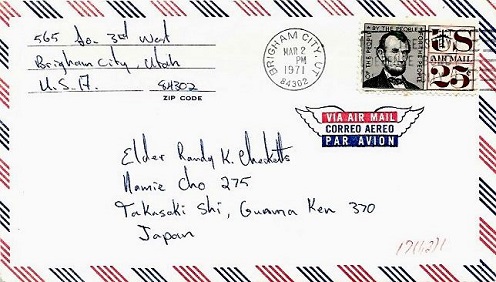 565 So. 3rd West
Brigham City, Utah
U.S.A. 84302
ZIP CODE
BRIGHAM CITY, UT
MAR 2
PM
1971
84302
OF THE PEOPLE BY THE PEOPLE FOR THE PEOPLE
US
AIR MAIL
25
VIA AIR MAIL
CORREO AEREO
PAR AVION
Elder Randy K. Checketts
Namie Cho 275
Takasaki Shi, Gunma Ken 370
Japan